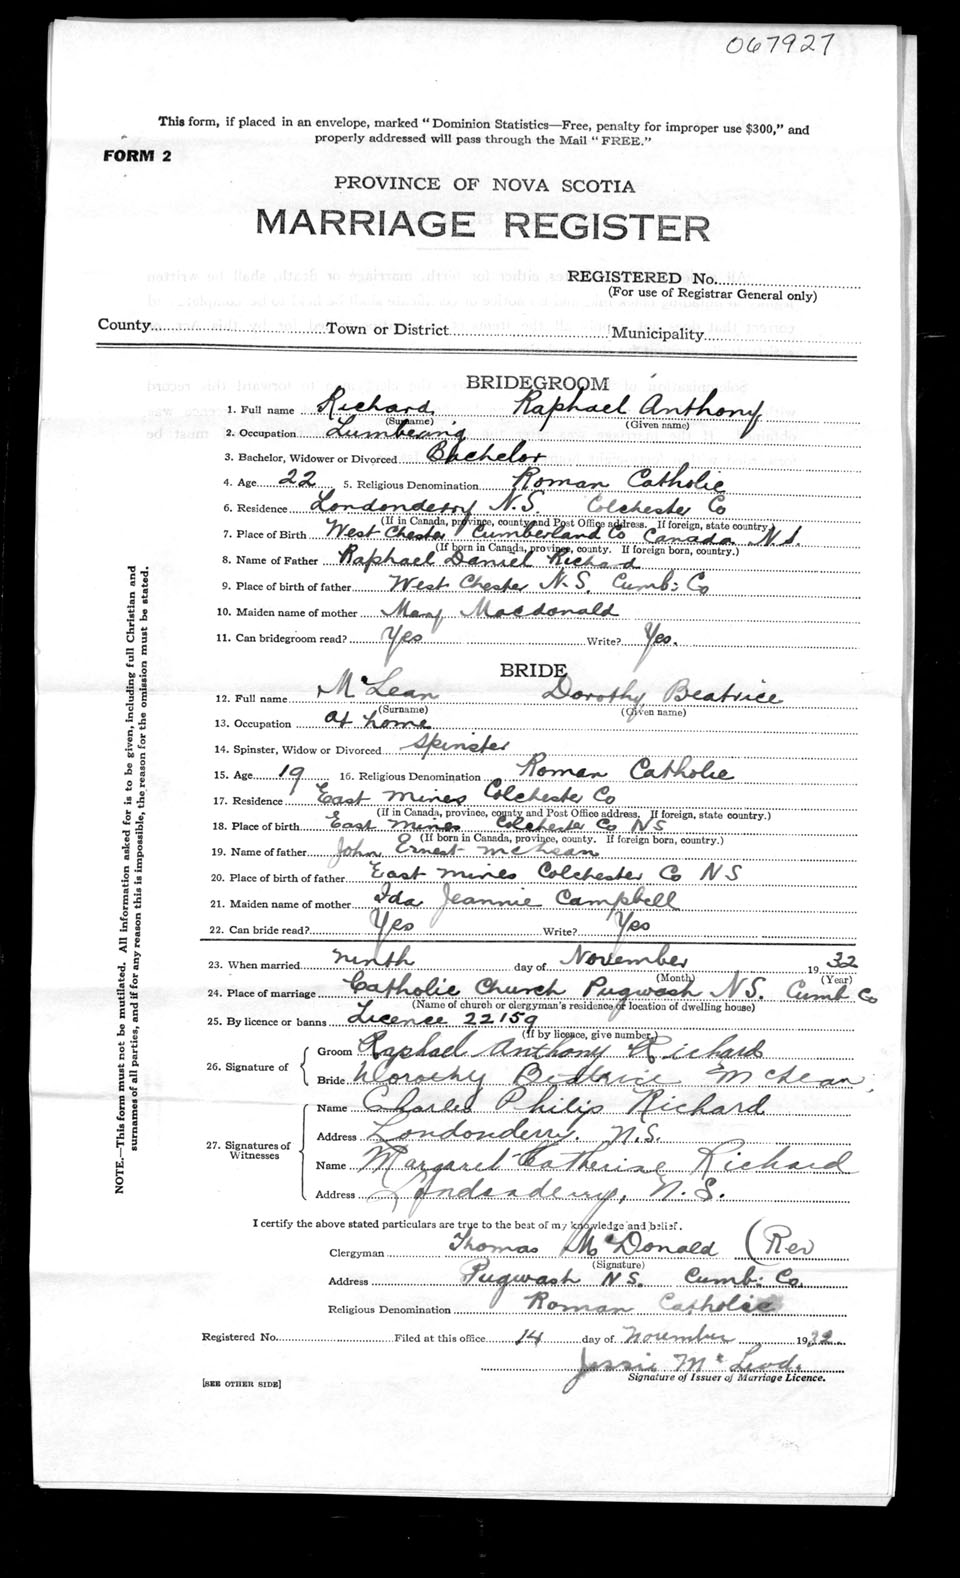 067927
This form, if placed in an envelope, marked "Dominion Statistics—Free, penalty for improper use $300," and
properly addressed will pass through the Mail "FREE."
FORM 2
PROVINCE OF NOVA SCOTIA
MARRIAGE REGISTER
REGISTERED No.
(For use of Registrar General only)
County Town or District Municipality
BRIDEGROOM
1. Full name Richard Raphael Anthony
(Surname) (Given name)
2. Occupation Lumbering
3. Bachelor, Widower or Divorced Bachelor
4. Age 22 5. Religious Denomination Roman Catholic
6. Residence Londonderry N.S. Colchester Co
(If in Canada, province, county and Post Office address. If foreign, state country)
7. Place of Birth West Chester Cumberland Co Canada N.S.
(If born in Canada, province, county. If foreign born, country.)
8. Name of Father Raphael Daniel Richard
9. Place of birth of father West Chester N.S. Cumb: Co
10. Maiden name of mother Mary Macdonald
11. Can bridegroom read? Yes Write? Yes.
BRIDE
12. Full name McLean Dorothy Beatrice
(Surname) (Given name)
13. Occupation at home
14. Spinster, Widow or Divorced Spinster
15. Age 19 16. Religious Denomination Roman Catholic
17. Residence East Mines Colchester Co
(If in Canada, province, county and Post Office address. If foreign, state country.)
18. Place of birth East Mines Colchester Co NS
(If born in Canada, province, county. If foreign born, country.)
19. Name of father John Ernest McLean
20. Place of birth of father East Mines Colchester Co NS
21. Maiden name of mother Ida Jeannie Campbell
22. Can bride read? Yes Write? Yes
23. When married ninth day of November 1932
(Month) (Year)
24. Place of marriage Catholic Church Pugwash N.S. Cumb Co
(Name of church or clergyman's residence or location of dwelling house)
25. By licence or banns Licence 22159
(If by licence, give number)
26. Signature of Groom Raphael Anthony Richard
Bride Dorothy Beatrice McLean
27. Signatures of Witnesses
Name Charles Philip Richard
Address Londonderry. N.S.
Name Margaret Catherine Richard
Address Londonderry, N.S.
I certify the above stated particulars are true to the best of my knowledge and belief.
Clergyman Thomas McDonald (Rev
(Signature)
Address Pugwash N.S. Cumb: Co.
Religious Denomination Roman Catholic
Registered No. Filed at this office 14 day of November 1932
Jessie McLeod.
Signature of Issuer of Marriage Licence.
[SEE OTHER SIDE]
NOTE.—This form must not be mutilated. All information asked for is to be given, including full Christian and
surnames of all parties, and if for any reason this is impossible, the reason for the omission must be stated.